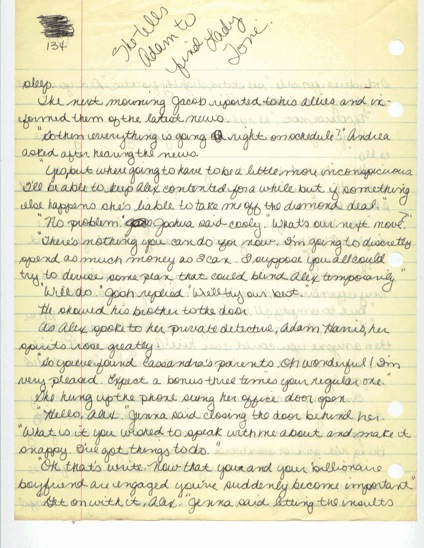 134
She tells
Adam to
find Lady
Tone.
sleep.
The next morning Jacob reported to his allies and in-
formed them of the latest news.
"So then everything is going right on schedule?" Andrea
asked after hearing the news.
"Yes, but where going to have to be a little more inconspicuous
I'll be able to keep Alex contented for a while but if something
else happens she's liable to take me off the diamond deal."
"No problem" Joshua said cooly. "What's our next move?"
"There's nothing you can do for now. I'm going to discreetly
spend as much money as I can. I suppose you all could
try to devise some plan that could blind Alex temporarily."
"Will do." Josh replied "We'll try our best."
He showed his brother to the door.
As Alex spoke to her private detective, Adam Harris, her
spirits rose greatly.
"So you've found Cassandra's parents. Oh wonderful! I'm
very pleased. Expect a bonus three times your regular one.
She hung up the phone swing her office door open.
"Hello, Alex" Jenna said closing the door behind her.
"What is it you wished to speak with me about and make it
snappy. I've got things to do."
"Oh that's write. Now that you and your billionaire
boyfriend are engaged you've suddenly become important"
"Get on with it, Alex." Jenna said letting the insults